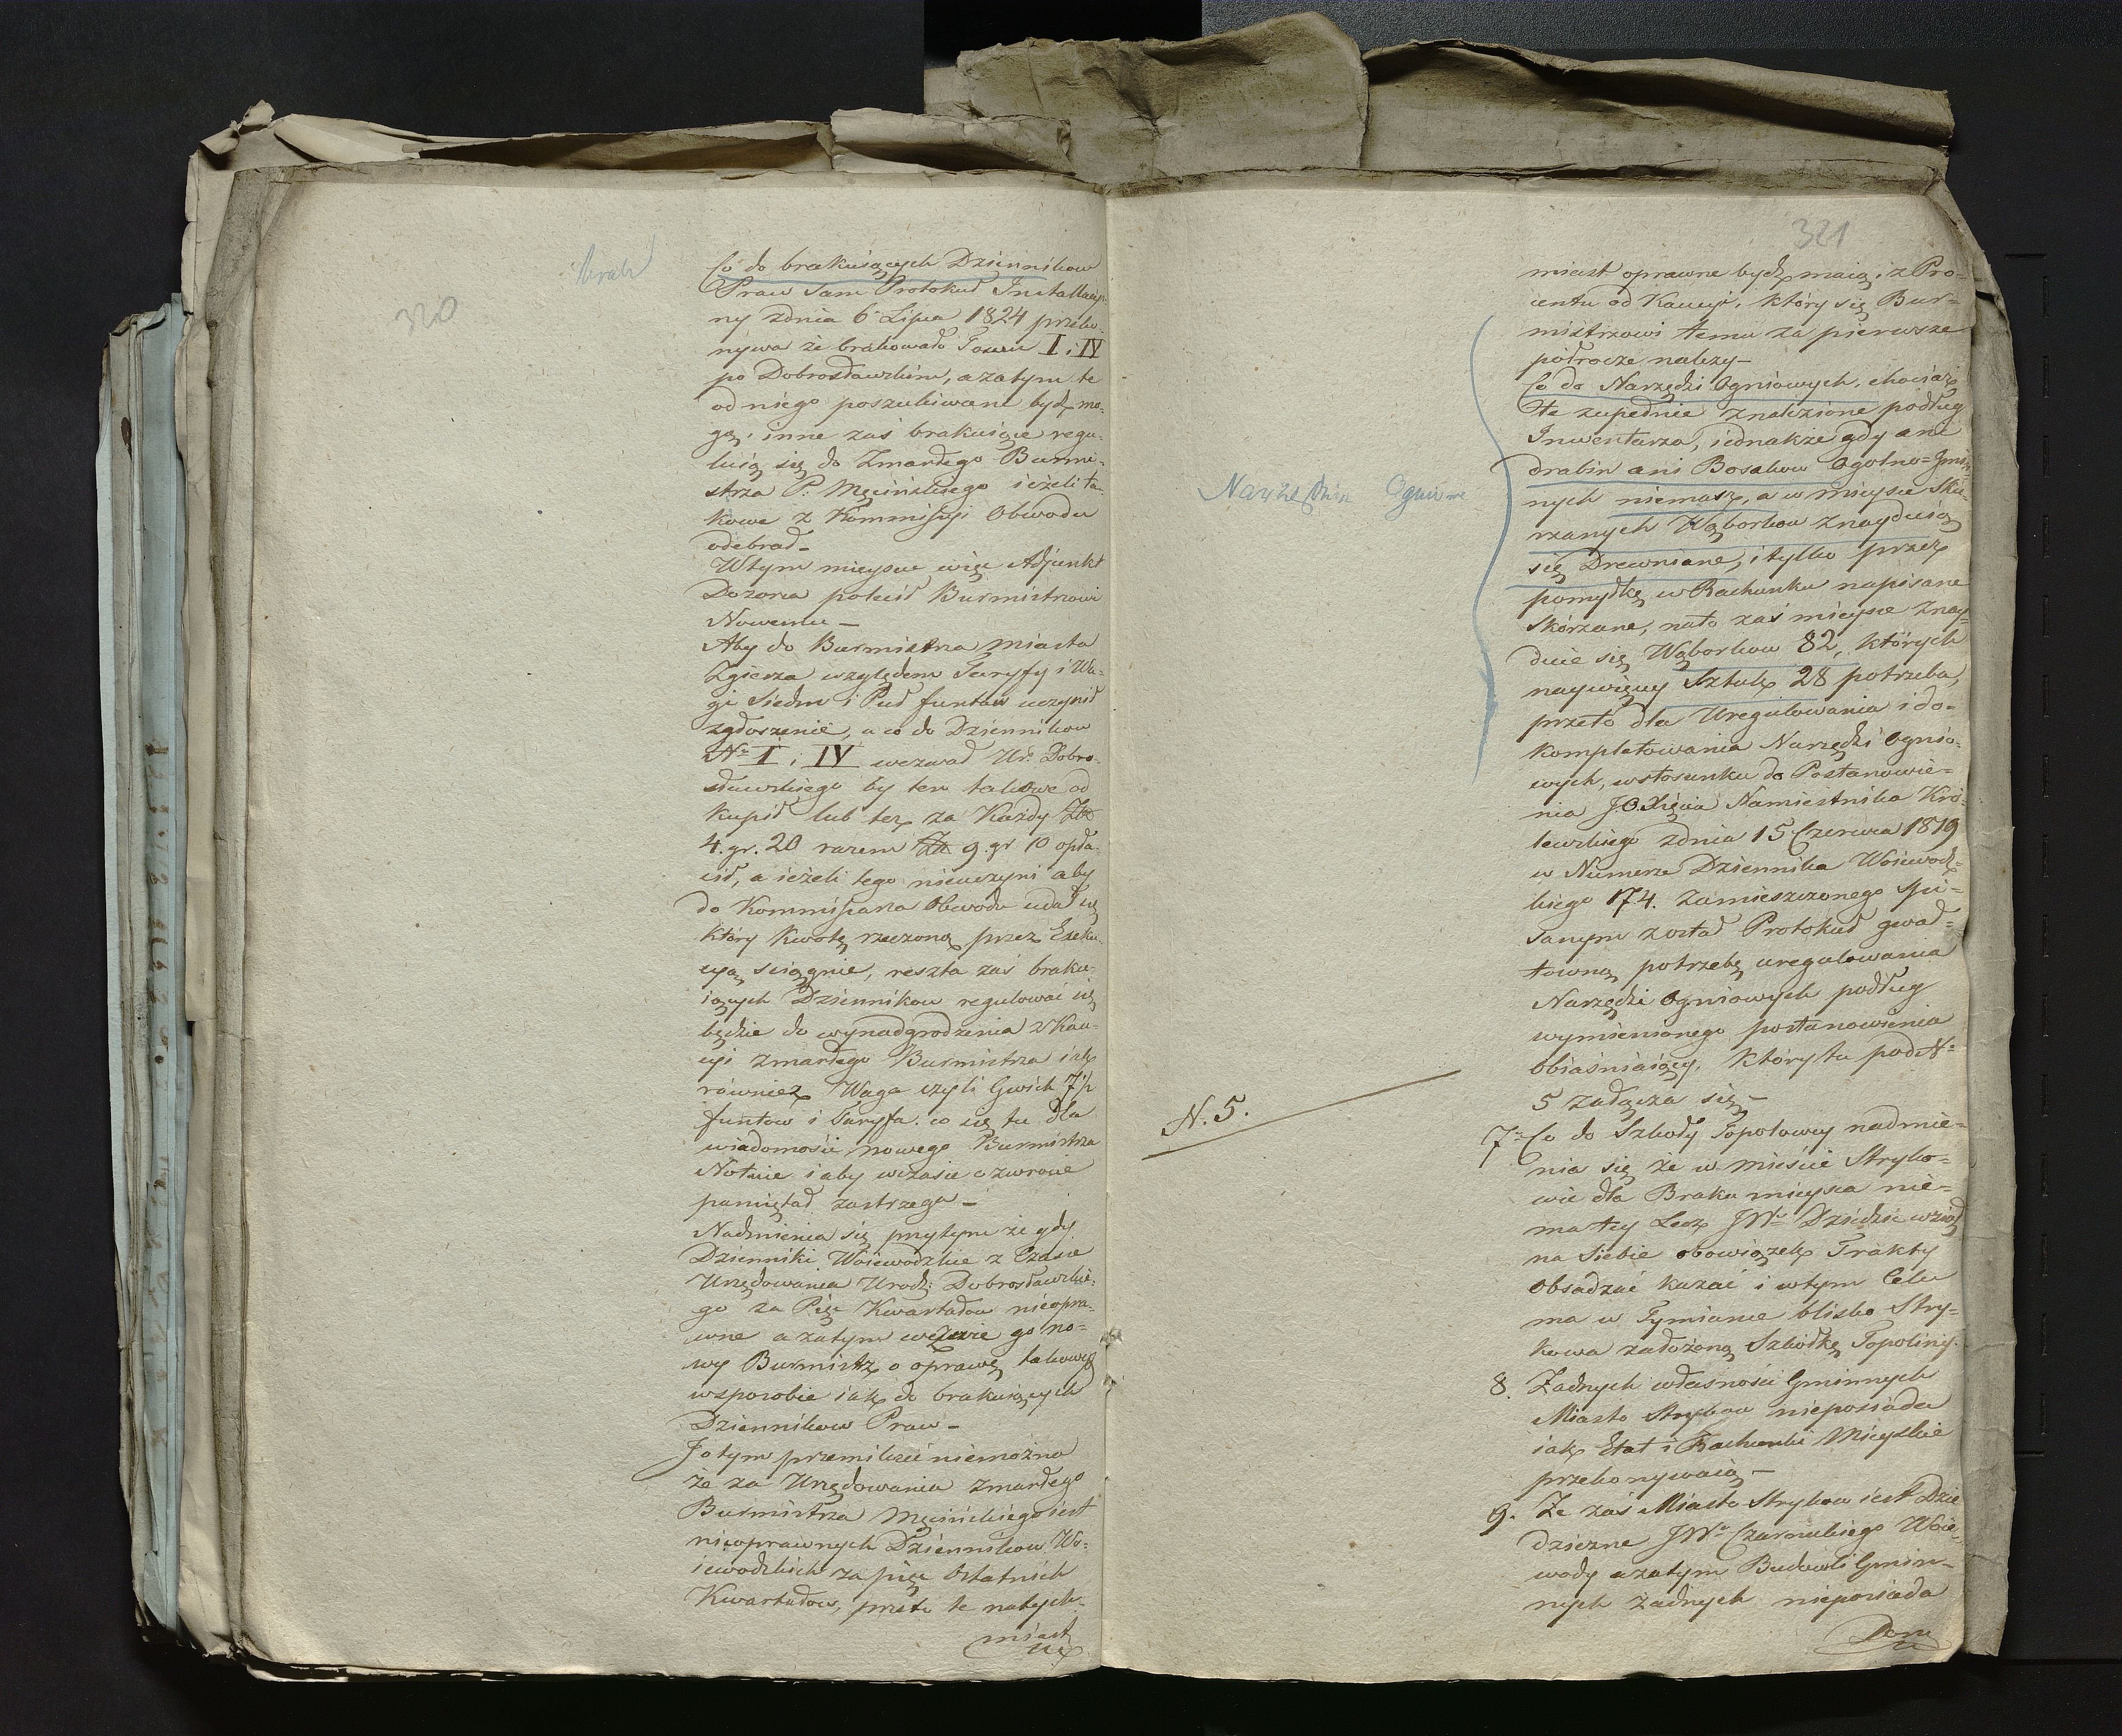 320
brak
Co do brakuiących Dzienników
Praw sam Protokuł Installacyi-
ny zdnia 6 Lipca 1824 przeko-
nywa że brakowało Tomu I i IV
po Dobrosławskim, a zatym te
od niego poszukiwane bydź mo-
gą, inne zaś brakuiące regu-
luią się do Zmarłego Burmi-
strza P. Męcińskiego ieżeli ta-
kowe z Kommissyi Obwodu
odebrał-
Wtym mieyscu więc Adjunkt
Dozorca polecił Burmistrzowi
Nowemu-
Aby do Burmistrza Miasta
Zgierza względem Taryfy i Wa-
gi Siedm i Puł funtów uczynił
zgłoszenie, a co do Dzienników
No I i IV wezwał Ur. Dobro-
sławskiego by ten takowe od
kupił lub też za Każdy Zło
4. gr. 20 razem Zł 9. gr 10 opła-
cił, a ieżeli tego nieuczyni aby
do Kommissarza Obwodu udał się
który Kwotę rzeczoną przez Exeku-
cyą sciągnie, reszta zaś braku-
iących Dzienników regulować się
będzie do wynadgrodzenia z Kau-
cyi zmarłego Burmistrza iak
również Waga czyli Gwicht 7½
funtów i Taryfa. co się tu dla
wiadomości nowego Burmistrza
Notuie i aby wczasie o zwrocie
pamiętał zastrzega-
Nadmienia się przytym że gdy
Dzienniki Woiewodzkie z Czasu
Urzędowania Urodz: Dobrosławskie-
go za Pięć Kwartałów nieopra-
wne a zatym wezwie go no-
wy Burmistrz o oprawę takowych
wsposobie iak do brakuiących
Dzienników Praw-
I otym przemilczeć niemożna
że za Urzędowania zmarłego
Burmistrza Męcińskiego iest
nieoprawnych Dzienników Wo-
iewodzkich za pięć Ostatnich
Kwartałów, przeto te natych-
miast
321
miast oprawne bydź maią, z Pro-
centu od Kaucyi, który się Bur-
mistrzowi temu za pierwsze
półrocze należy-
Co do Narzędzi Ogniowych, chociaż
te zupełnie znalezione podług
Inwentarza, iednakże gdy ani
drabin ani Bosaków Ogolno=Gmin-
nych niemasz, a w mieysce Skó-
rzanych Węborków znayduią
się Drewniane, i tylko przez
pomyłkę w Rachunku napisane
Skórzane, nato zaś mieysce Znay-
duie się Węborków 82, których
naywięcey Sztuk 28 potrzeba,
przeto dla Uregulowania i do-
kompletowania Narzędzi Ognio-
wych, wstosunku do Postanowie-
nia J.O. Xięcia Namiestnika Kró-
lewskiego zdnia 15 Czerwca 1819
w Numerze Dziennika Woiewodz-
kiego 174. zamieszczonego spi-
sanym został Protokuł gwał-
towną potrzebę uregulowania
Narzędzi Ogniowych podług
wymienionego postanowienia
obiaśniaiący, który tu pod N=
5 załącza się-
Narzędzia Ogniowe
N. 5.
7= Co do Szkoły Topolowey nadmie-
nia się że w mieście Stryko-
wie dla Braku mieysca nie-
ma tey Lecz JWy Dziedzic wziął
na Siebie obowiązek Trakty
obsadzać kazać i wtym Celu
ma w Tymiance blisko Stry-
kowa założoną Szkółkę Topoliny.
8. Żadnych własności Gminnych
Miasto Stryków nieposiada
iak Etat i Rachunki Mieyskie
przekonywaią-
9. Że zaś Miasto Stryków iest Dzie
dziczne JWo Czarneckiego Woie-
wody a zatym Budowli Gmin-
nych żadnych nieposiada
Dom